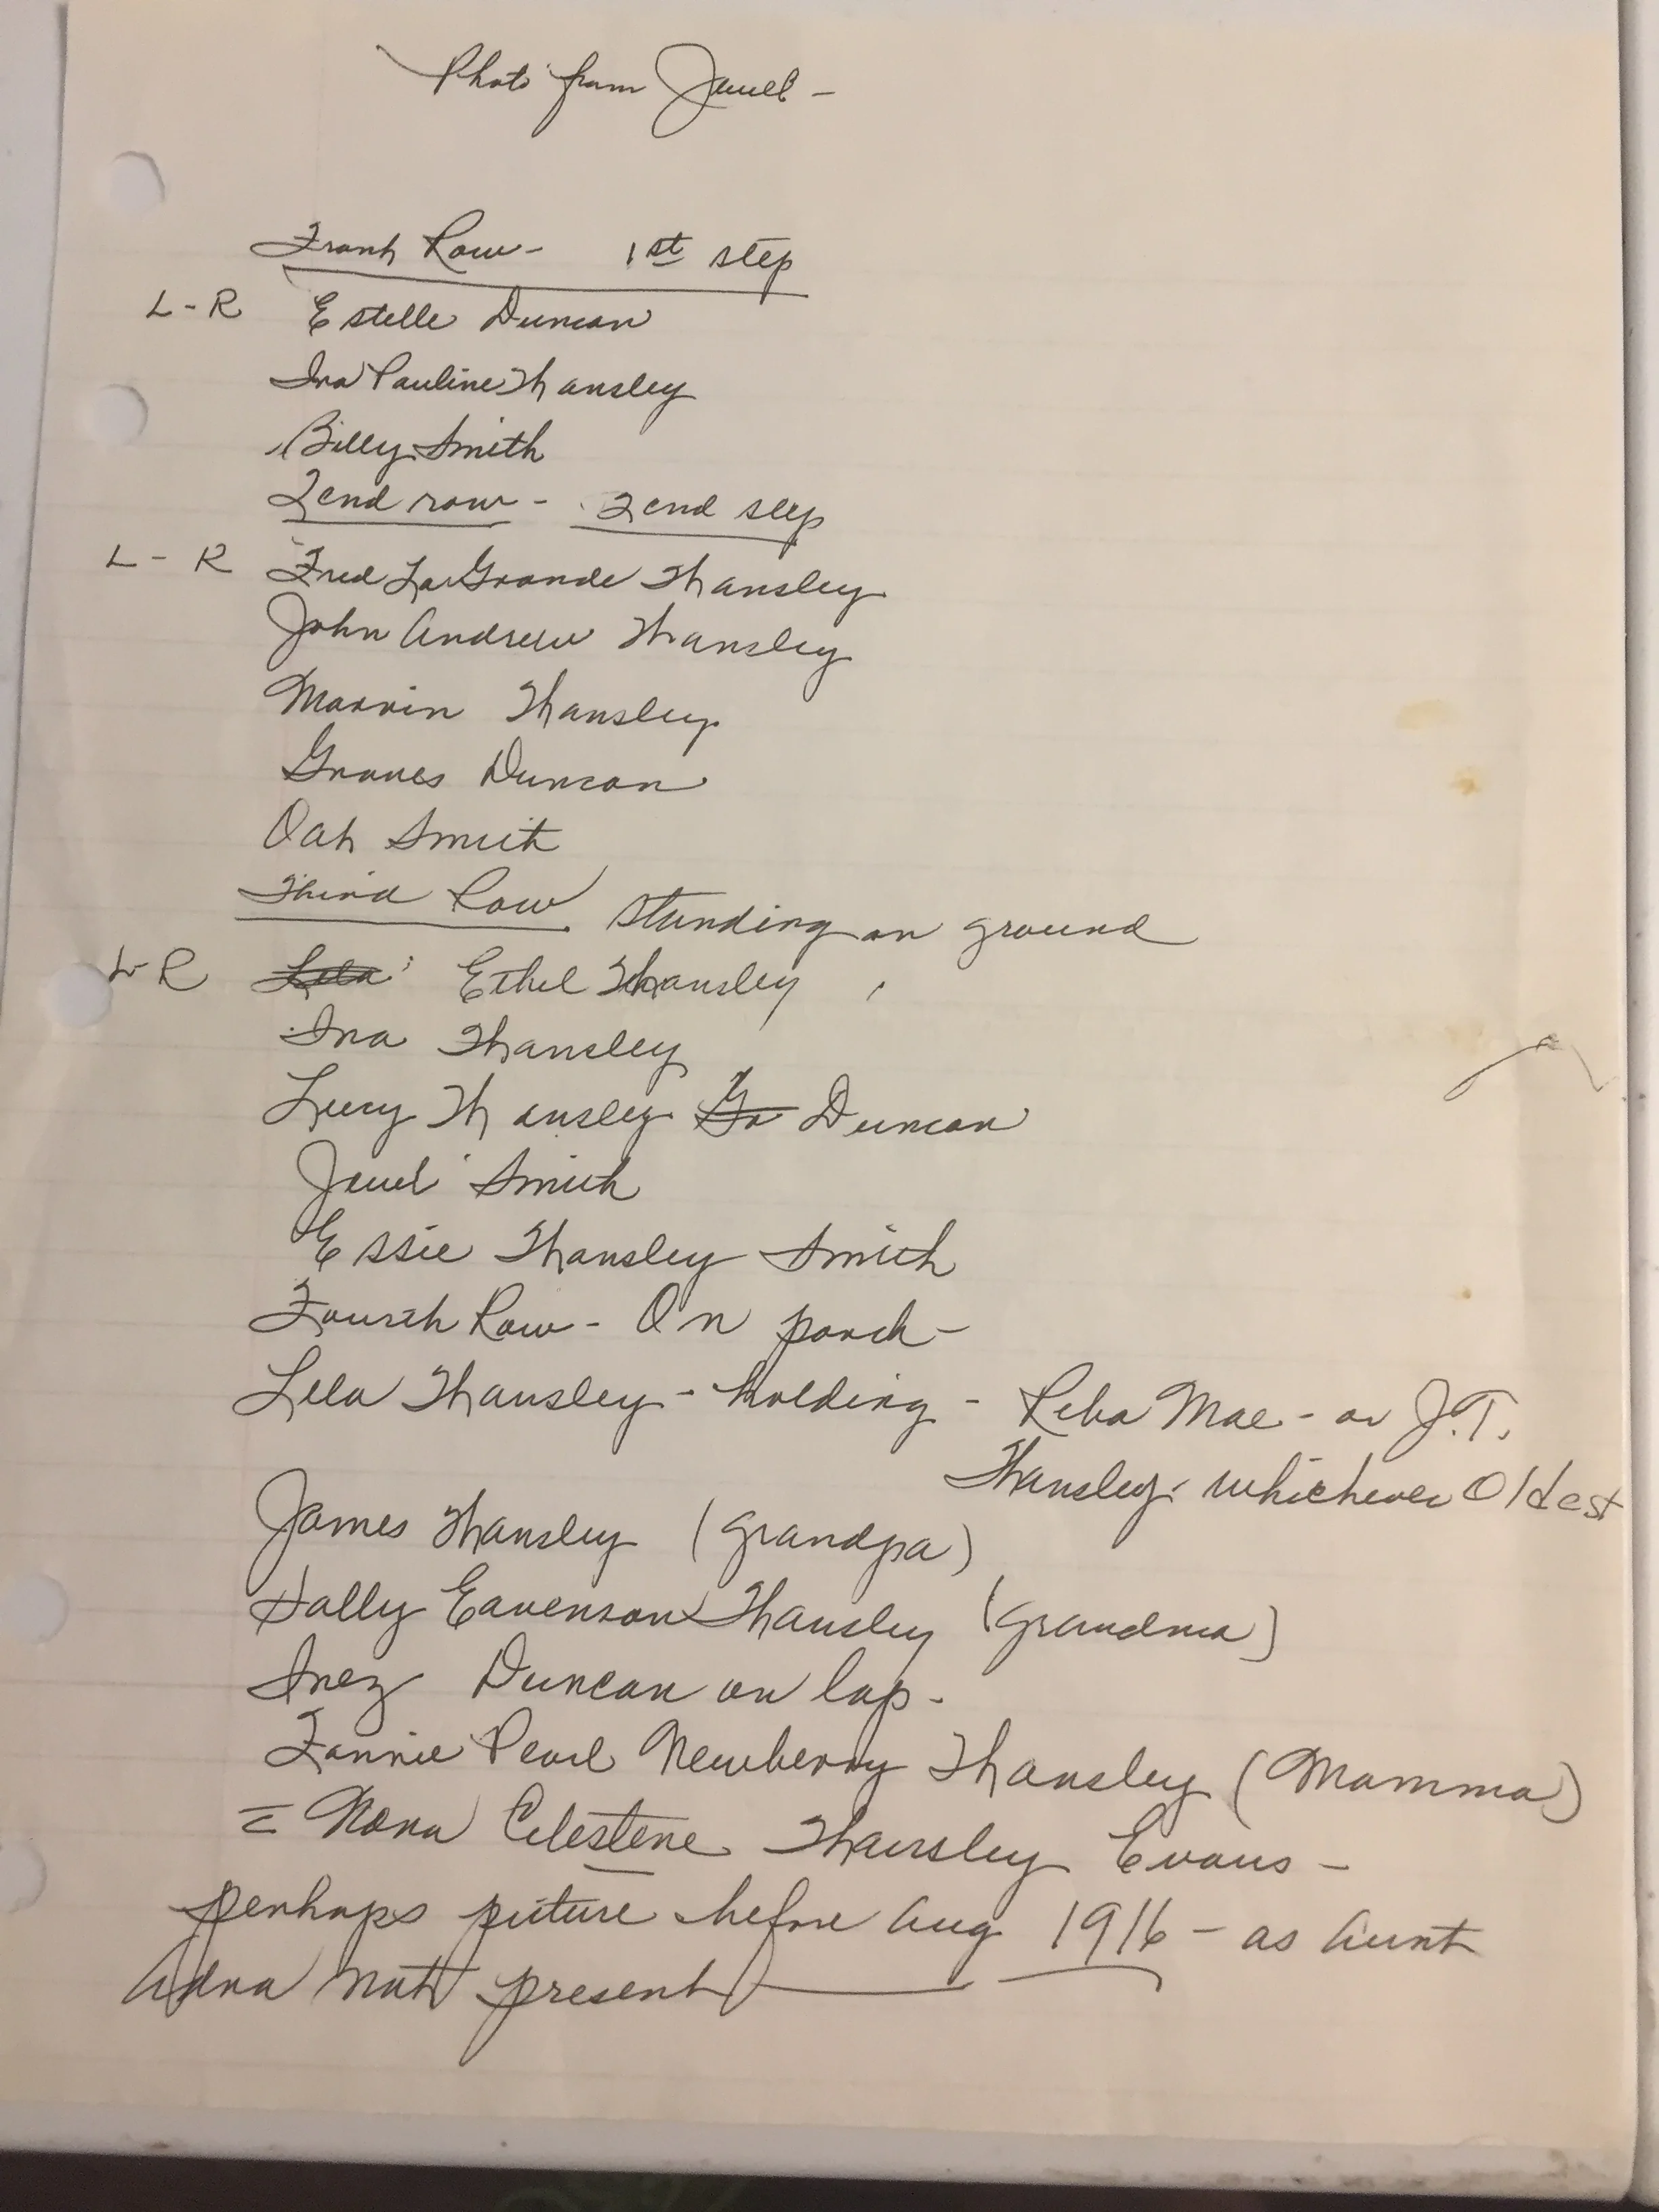 Photo from Jewel -
Front Row - 1st step
L - R Estelle Duncan
Ina Pauline Thansley
Billy Smith
2end row - 2end step
L - R Fred LaGrande Thansley
John Andrew Thansley
Marvin Thansley
Graves Duncan
Oah Smith
Third Row standing on ground
L-R Lela Ethel Thansley
Ina Thansley
Lucy Thansley Gr Duncan
Jewel Smith
Essie Thansley Smith
Fourth Row - On porch -
Lela Thansley - holding - Reba Mae - or J.T.
Thansley - whichever Oldest
James Thansley (grandpa)
Sally Eavenson Thansley (grandma)
Inez Duncan on lap -
Fannie Pearl Newberry Thansley (Mamma)
= Nona Celestene Thansley Evans -
perhaps picture before Aug 1916 - as Aunt
Adna not present